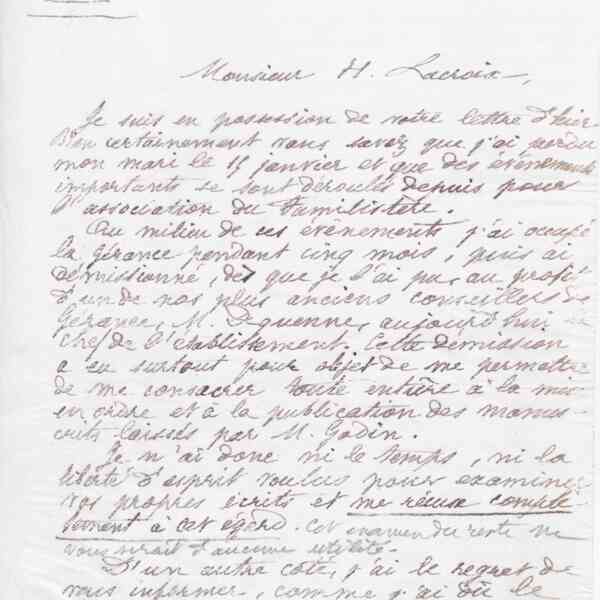 Monsieur H. Lacroix,
Je suis en possession de votre lettre d'hier
Bien certainement vous savez que j'ai perdu
mon mari le 15 janvier et que des événements
importants se sont déroulés depuis pour
l'association du Familistère.
Au milieu de ces événements j'ai occupé
la gérance pendant cinq mois, puis ai
démissionné, dès que je l'ai pu, au profit
d'un de nos plus anciens conseillers de
Gérance, M. Dequenne, aujourd'hui
chef de l'établissement. Cette démission
a eu surtout pour objet de me permettre
de me consacrer toute entière à la mise
en ordre et à la publication des manus-
crits laissés par M. Godin.
Je n'ai donc ni le temps, ni la
liberté d'esprit voulus pour examiner
vos propres écrits et me récuse complè-
tement à cet égard. Cet examen du reste ne
vous serait d'aucune utilité.
D'un autre côté, j'ai le regret de
vous informer, comme j'ai dû le